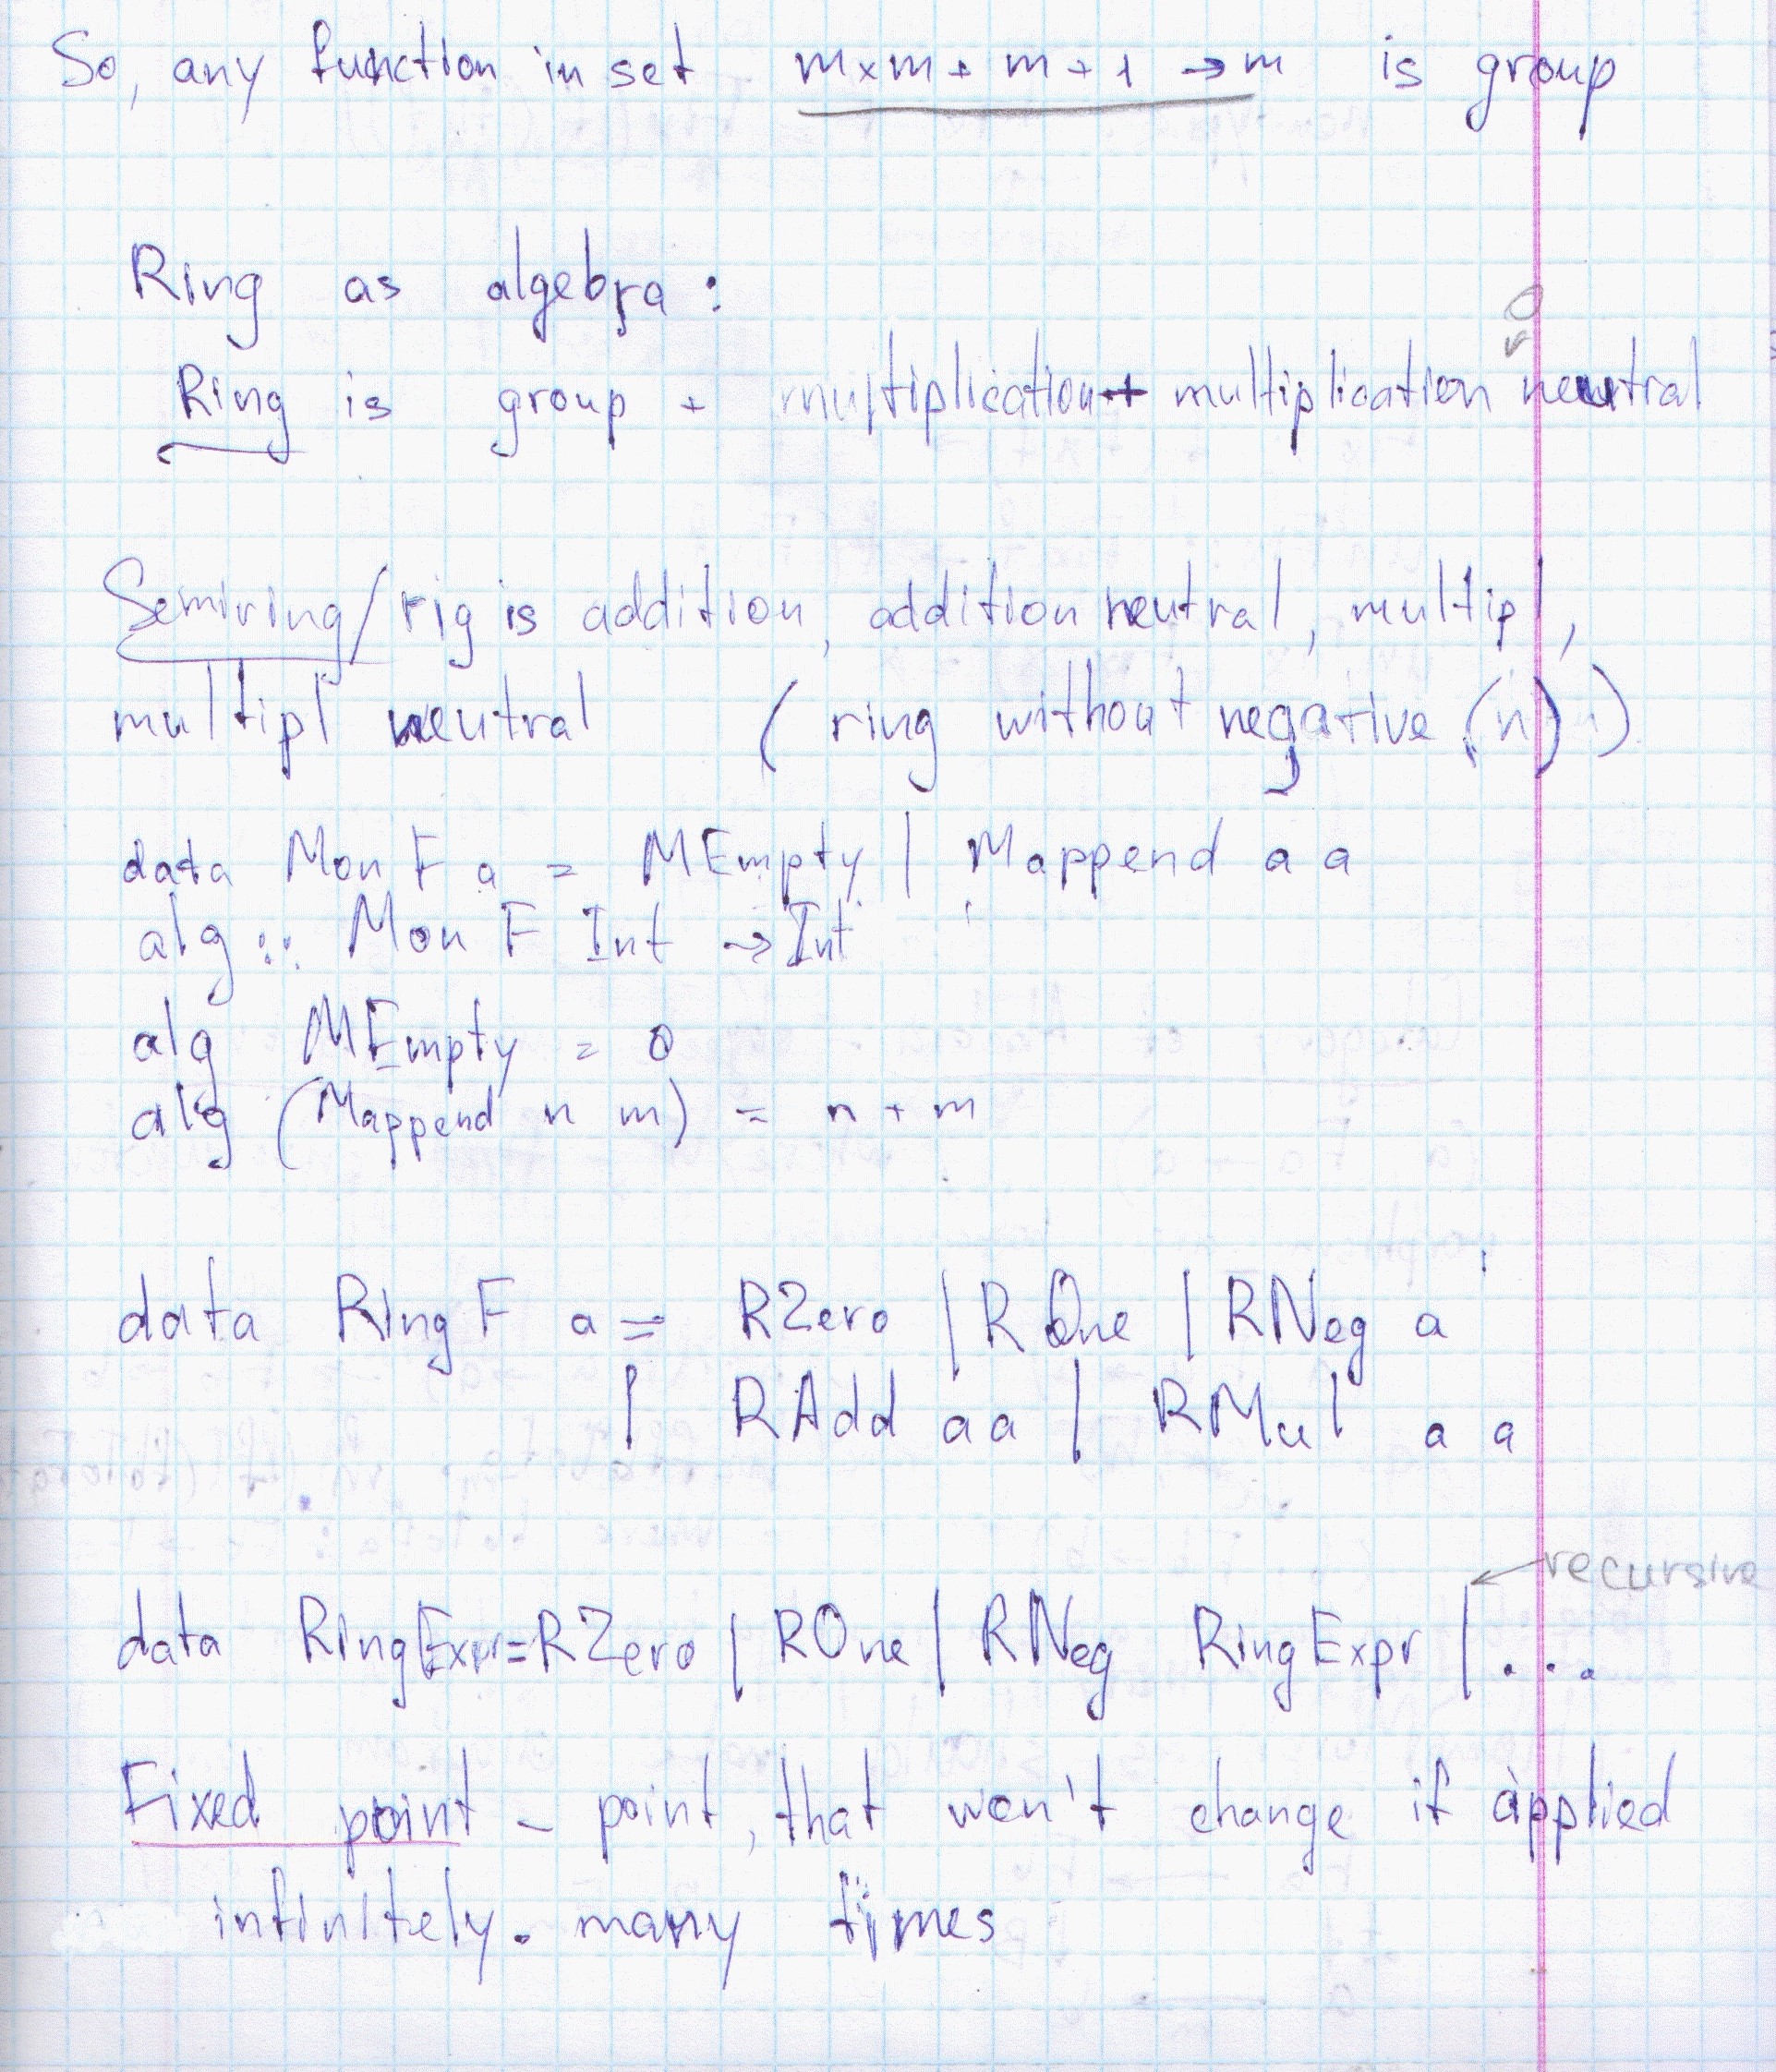 So, any function in set m×m + m + 1 → m is group
Ring as algebra:
0
Ring is group + multiplication + multiplication neutral
Semiring/rig is addition, addition neutral, multipl,
multipl neutral ( ring without negative (n) )
data MonF a = MEmpty | Mappend a a
alg :: MonF Int → Int
alg MEmpty = 0
alg (Mappend n m) = n + m
data RingF a = RZero | ROne | RNeg a
| RAdd a a | RMul a a
recursive
data RingExpr = RZero | ROne | RNeg RingExpr | ...
Fixed point - point, that won't change if applied
infinitely many times